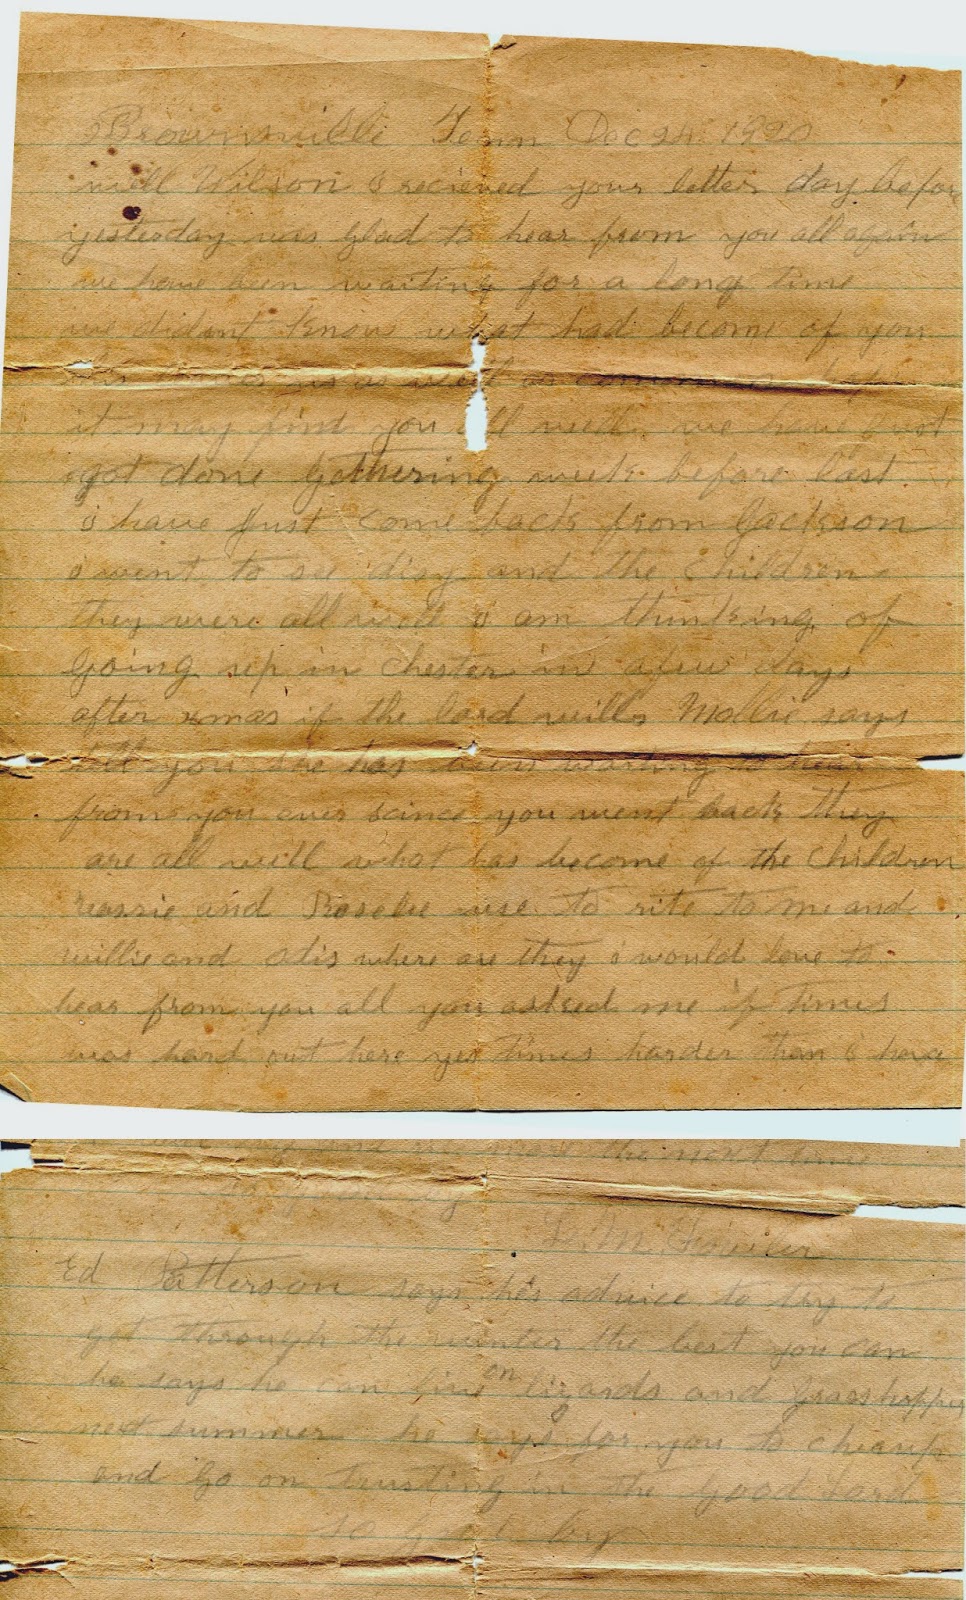 Brownsville Tenn Dec 24 1920
well Wilson i recieved your letter day befor
yesterday was glad to hear from you all again
we have been waiting for a long time
we didant know what had become of you
us as well as common
it may find you all well we have just
got done Gathering week before last
i have Just come back from Jackson
i went to see disy and the children
they were all well i am thinking of
Going up in Chester in a few days
after xmas if the lord wills Mollie says
tell you she has been waiting to hear
from you ever scince you went back they
are all well what has become of the children
and Roselee use to rite to me and
willie and Otis where are they i would love to
hear from you all you asked me if times
was hard out here yes times harder than i have
the next time

L.M. Fowler
Ed Patterson says he's advice to try to
get through the winter the best you can
he says he can live on lizards and Grasshoppers
next summer he says for you to chearup
and Go on trusting in the Good Lord
so Good by